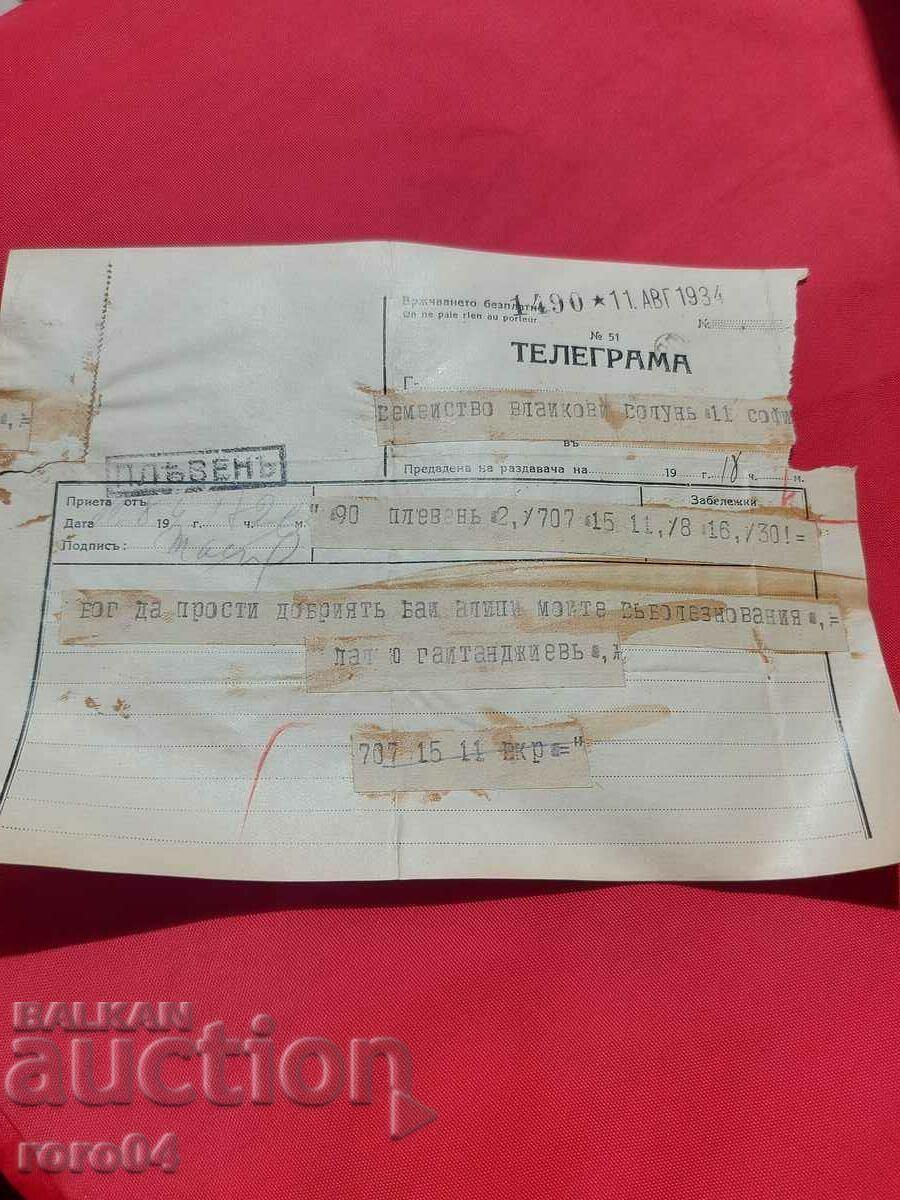 Врѫчването безплатно 1490 * 11. АВГ 1934
On ne paie rien au porteur
№
№ 51
ТЕЛЕГРАМА
Г-
семейство влайкови солунь 11 софи
въ
ПЛѢВЕНЪ
Предадена на раздавача на 19 г. 18 ч. м.
Приета отъ
Забележки
Дата 19 г. ч. м.
"90 плевень 2,/707 15 11,/8 16,/30!=
Подписъ:
бог да прости добриять бай алипи моите съболезнования .,=
гайтанджиевь .,
707 15 11 вкр ="
BALKAN
auction
roro04